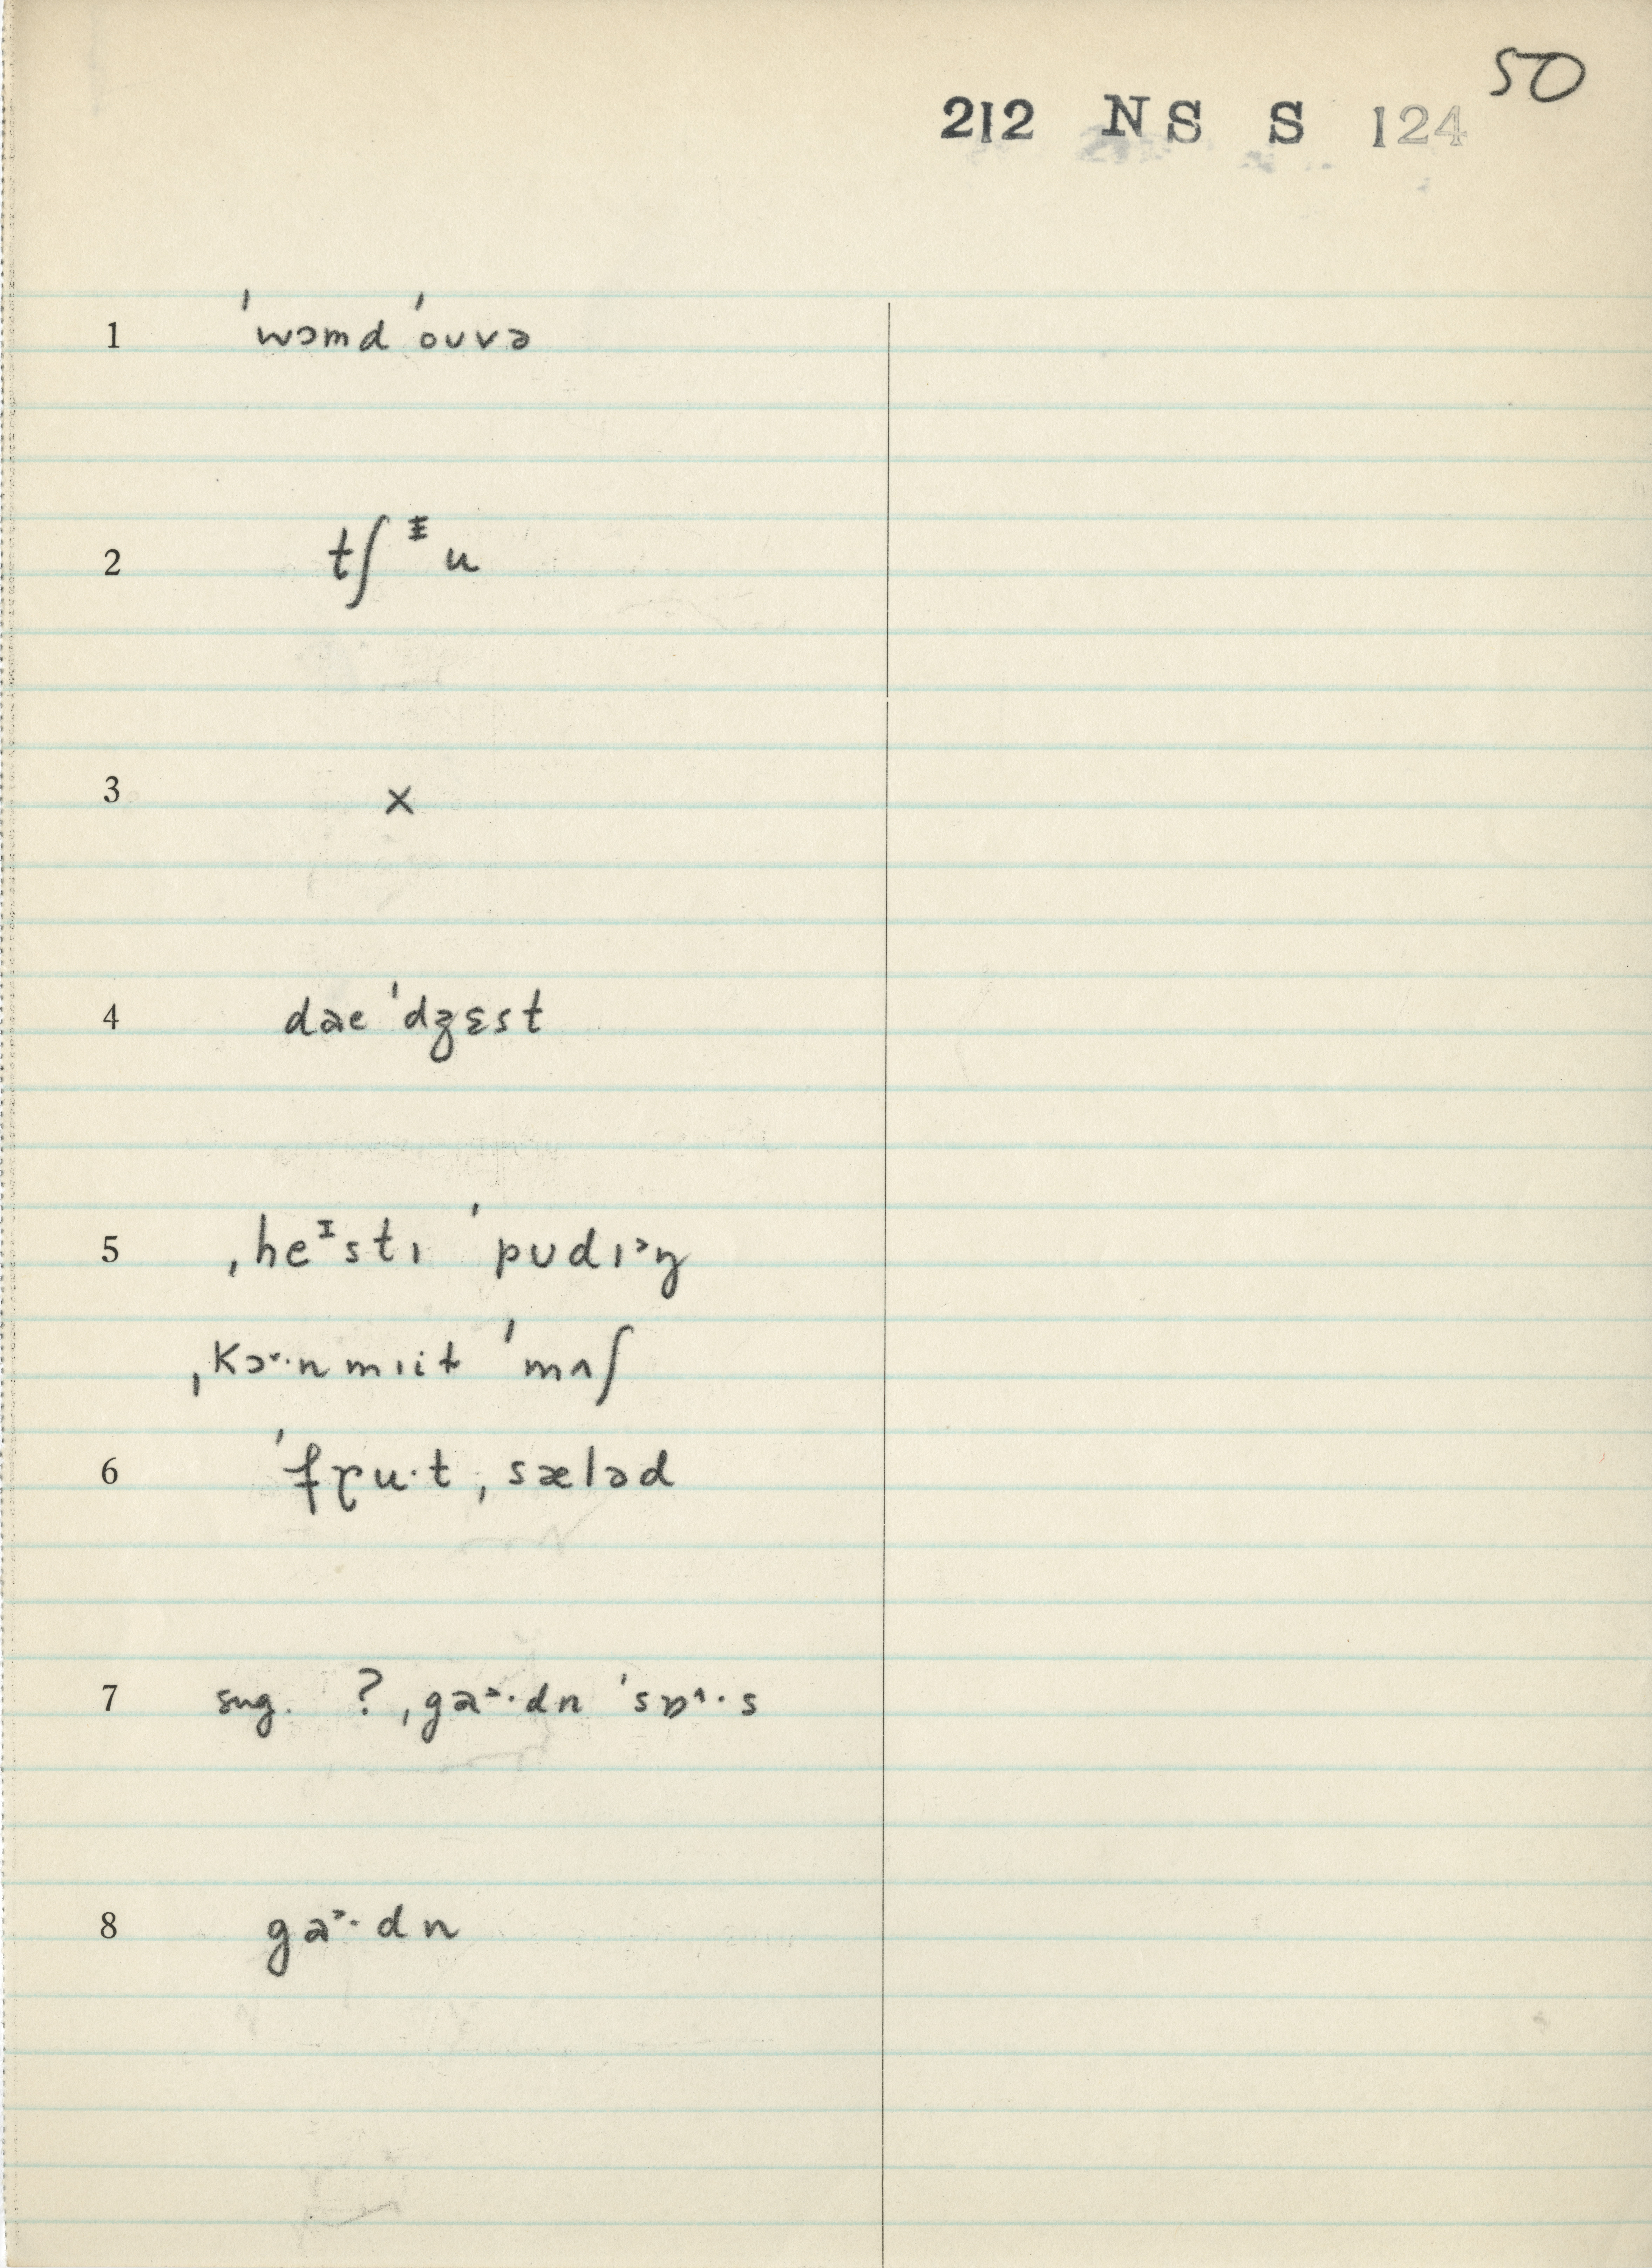 50
212 NS S 124
1 ˈwɔmd ˈoʊvə
2 tʃ ᵻ u
3 x
4 dəe ˈdʒɛst
5 ˌheᶦstɪ ˈpʊdɪ˃ŋ
ˌkɔ˅·n mɪit ˈmʌʃ
6 ˈfɽu·t ˌsæləd
7 sug. ? ˌga˃·dn ˈsɒ^·s
8 ga˃·dn